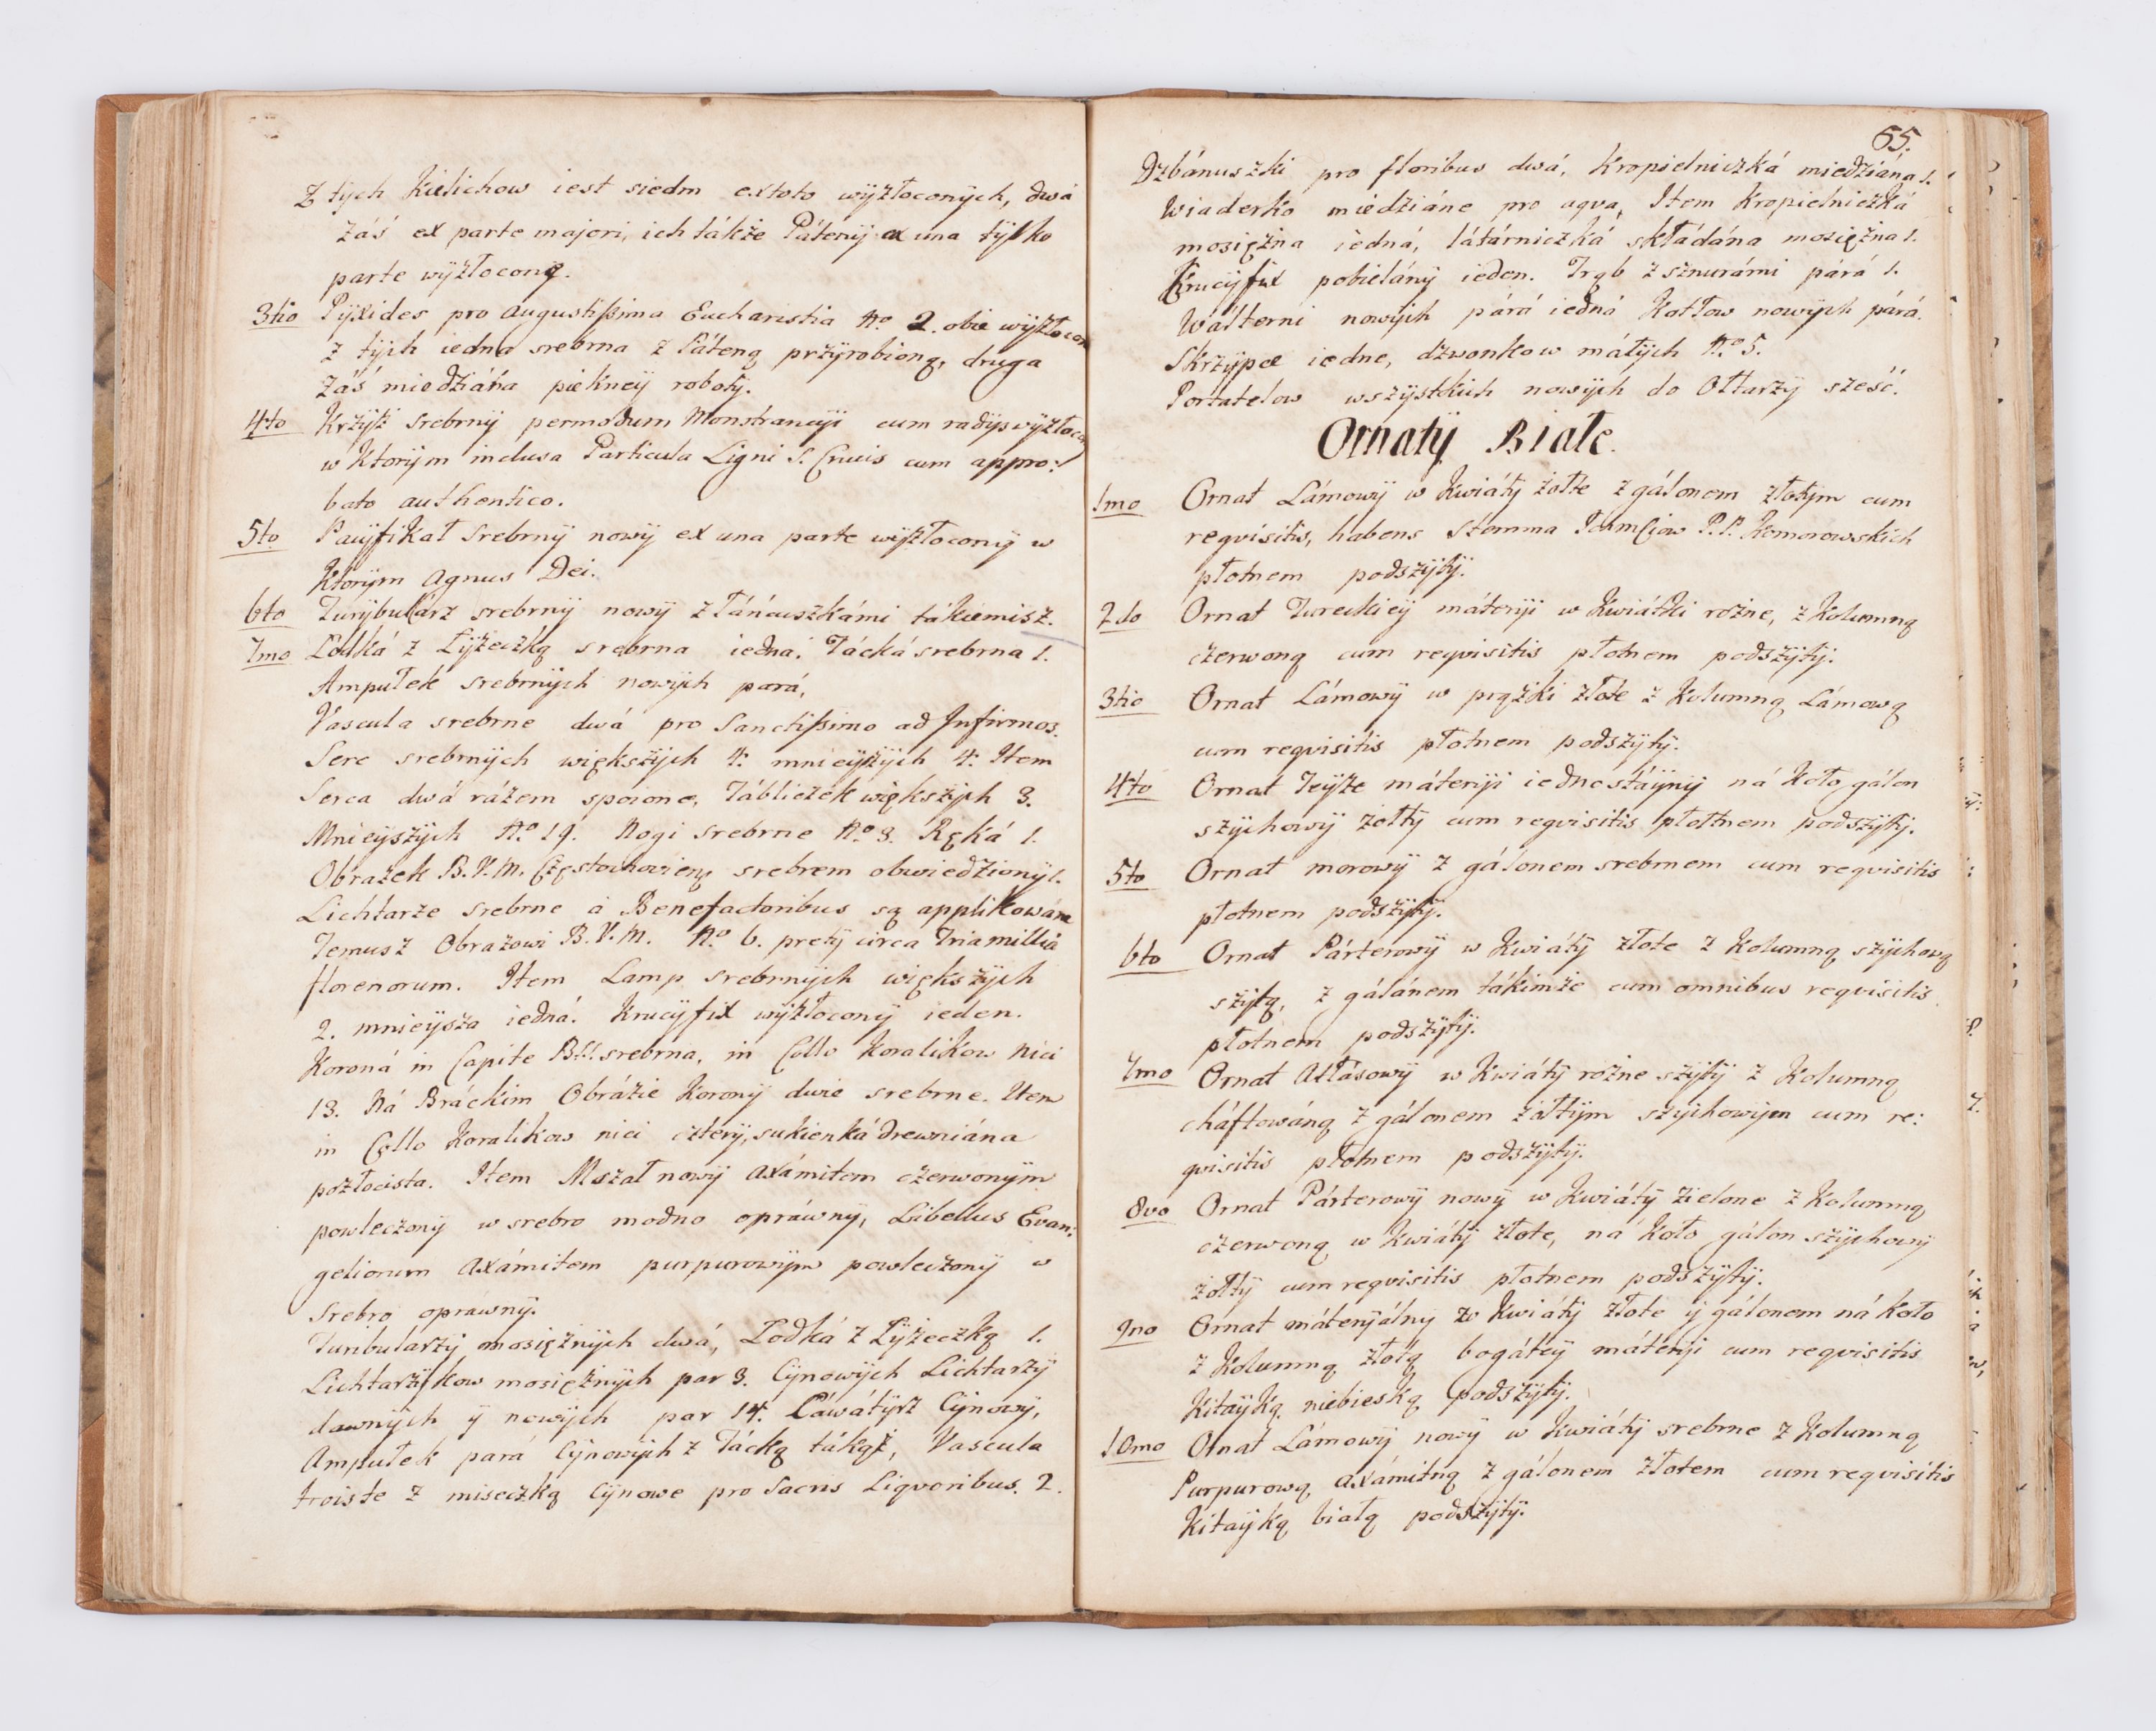 Z tÿch Kielichow iest siedm ex toto wÿzłoconÿch, dwá
záś ex parte majori, ich tákże Pátenÿ ex una tÿlko
parte wÿzłoconą.
3tio Pÿxides pro Augustißima Eucharistia No. 2. obie wÿzłocon
z tÿch iedna srebrna z Páteną przÿrobioną, druga
záś miedziána piękneÿ robotÿ.
4to Krzÿż srebrnÿ per modum Monstrancÿi cum radÿs wÿzłoco
w Ktorÿm inclusa Particula Ligni S. Crucis cum appro:
bato authentico.
5to Pacÿfikał Srebrnÿ nowÿ ex una parte wÿzłoconÿ w
Ktorÿm Agnus Dei.
6to Turÿbularz srebrnÿ nowÿ z łáńcuszkámi tákiemisz.
7mo Łodká z Łÿżeczką srebrna iedna. Tácká srebrna 1.
Ampułek srebrnÿch nowÿch pará,
Vascula srebrne dwá pro Sanctißimo ad Infirmos.
Serc srebrnÿch większÿch 4: mnieÿszÿch 4: Item
Serca dwá rázem spoione, Tábliczek większÿch 3.
Mnieÿszÿch No 19. Nogi srebrne No 3. Ręká 1.
Obrazek B.V.M. Częstochowieng srebrem obwiedzionÿ 1.
Lichtarze srebrne á Benefactoribus są applikowáne
Temusz Obrazowi B.V.M. No. 6. pretÿ circa Tria millia
florenorum. Item Lamp srebrnÿch większÿch
2. mnieÿsza iedná. Krucÿfix wÿzłoconÿ ieden.
Koroná in Capite srebrna, in Collo Koralikow nici
13. Ná Bráckim Obrázie Koronÿ dwie srebrne. Item
in Collo Koralikow nici czterÿ, sukienká drewniána
pozłocista. Item Mszał nowÿ Axámitem czerwonÿm
powleczonÿ w srebro modno opráwnÿ, Libellus Evan:
geliorum Axámitem purpurowÿm powleczonÿ w
Srebro oprawnÿ.
Turibularzÿ mosiężnÿch dwá, Łodká z Łÿżeczką 1.
Lichtarzÿkow mosiężnÿch par 3. Cÿnowÿch Lichtarzÿ
dawnÿch ÿ nowÿch par 14. Láwátÿrz Cÿnowÿ,
Ampułek pará Cÿnowÿch z Tácką tákąż, Vascula
troiste z miseczką Cÿnowe pro Sacris Liqvoribus. 2.
65.
Dzbánuszki pro floribus dwá, Kropielniczká miedziána 1.
Wiaderko miedziáne pro aqva, Item Kropielniczká
mosiężna iedná, látárniczká składána mosiężna 1.
Krucÿfix pobielánÿ ieden. Trąb z sznurámi párá 1.
Walterni nowÿch párá iedná Kotłow nowÿch párá.
Skrzÿpce iedne, dzwonkow máłÿch No 5.
Portatelow wszÿstkich nowÿch do Ołtarzÿ sześć.
Ornatÿ Białe.
1mo Ornat Lámowÿ w Kwiátÿ żołte z gálonem złotÿm cum
reqvisitis, habens Stemma P.P. Komorowskich
płotnem podszÿtÿ.
2do Ornat Tureckieÿ máterÿi w Kwiátki rożne, z Kolumną
czerwoną cum reqvisitis płotnem podszÿtÿ.
3tio Ornat Lámowÿ w prążki złote z Kolumną Lámową
cum reqvisitis płotnem podszÿtÿ.
4to Ornat Teÿże máterÿi iednostáÿnÿ ná Koło gálon
szÿchowÿ żołtÿ cum reqvisitis płotnem podszÿtÿ.
5to Ornat morowÿ z gálonem srebrnem cum reqvisitis
płotnem podszÿtÿ.
6to Ornat Párterowÿ w Kwiátÿ złote z Kolumną szÿchową
szÿtą, z gálánem tákimże cum omnibus reqvisitis
płotnem podszÿtÿ.
7mo Ornat Atłásowÿ w Kwiátÿ rożne szÿtÿ z Kolumną
cháftowáną z gálonem żołtÿm szÿchowÿm cum re:
qvisitis płotnem podszÿtÿ.
8vo Ornat Párterowÿ nowÿ w Kwiátÿ zielone z Kolumną
czerwoną w Kwiátÿ złote, ná Koło gálon szÿchowÿ
żołtÿ cum reqvisitis płotnem podszÿtÿ.
9no Ornat máterÿálnÿ w Kwiátÿ złote ÿ gálonem ná koło
z Kolumną złotą bogáteÿ máterÿi cum reqvisitis
Kitaÿką niebieską podszÿtÿ.
10mo Ornat Lámowÿ nowÿ w Kwiátÿ srebrne z Kolumną
Purpurową axámitną z gálonem złotem cum reqvisitis
Kitaÿką białą podszÿtÿ.